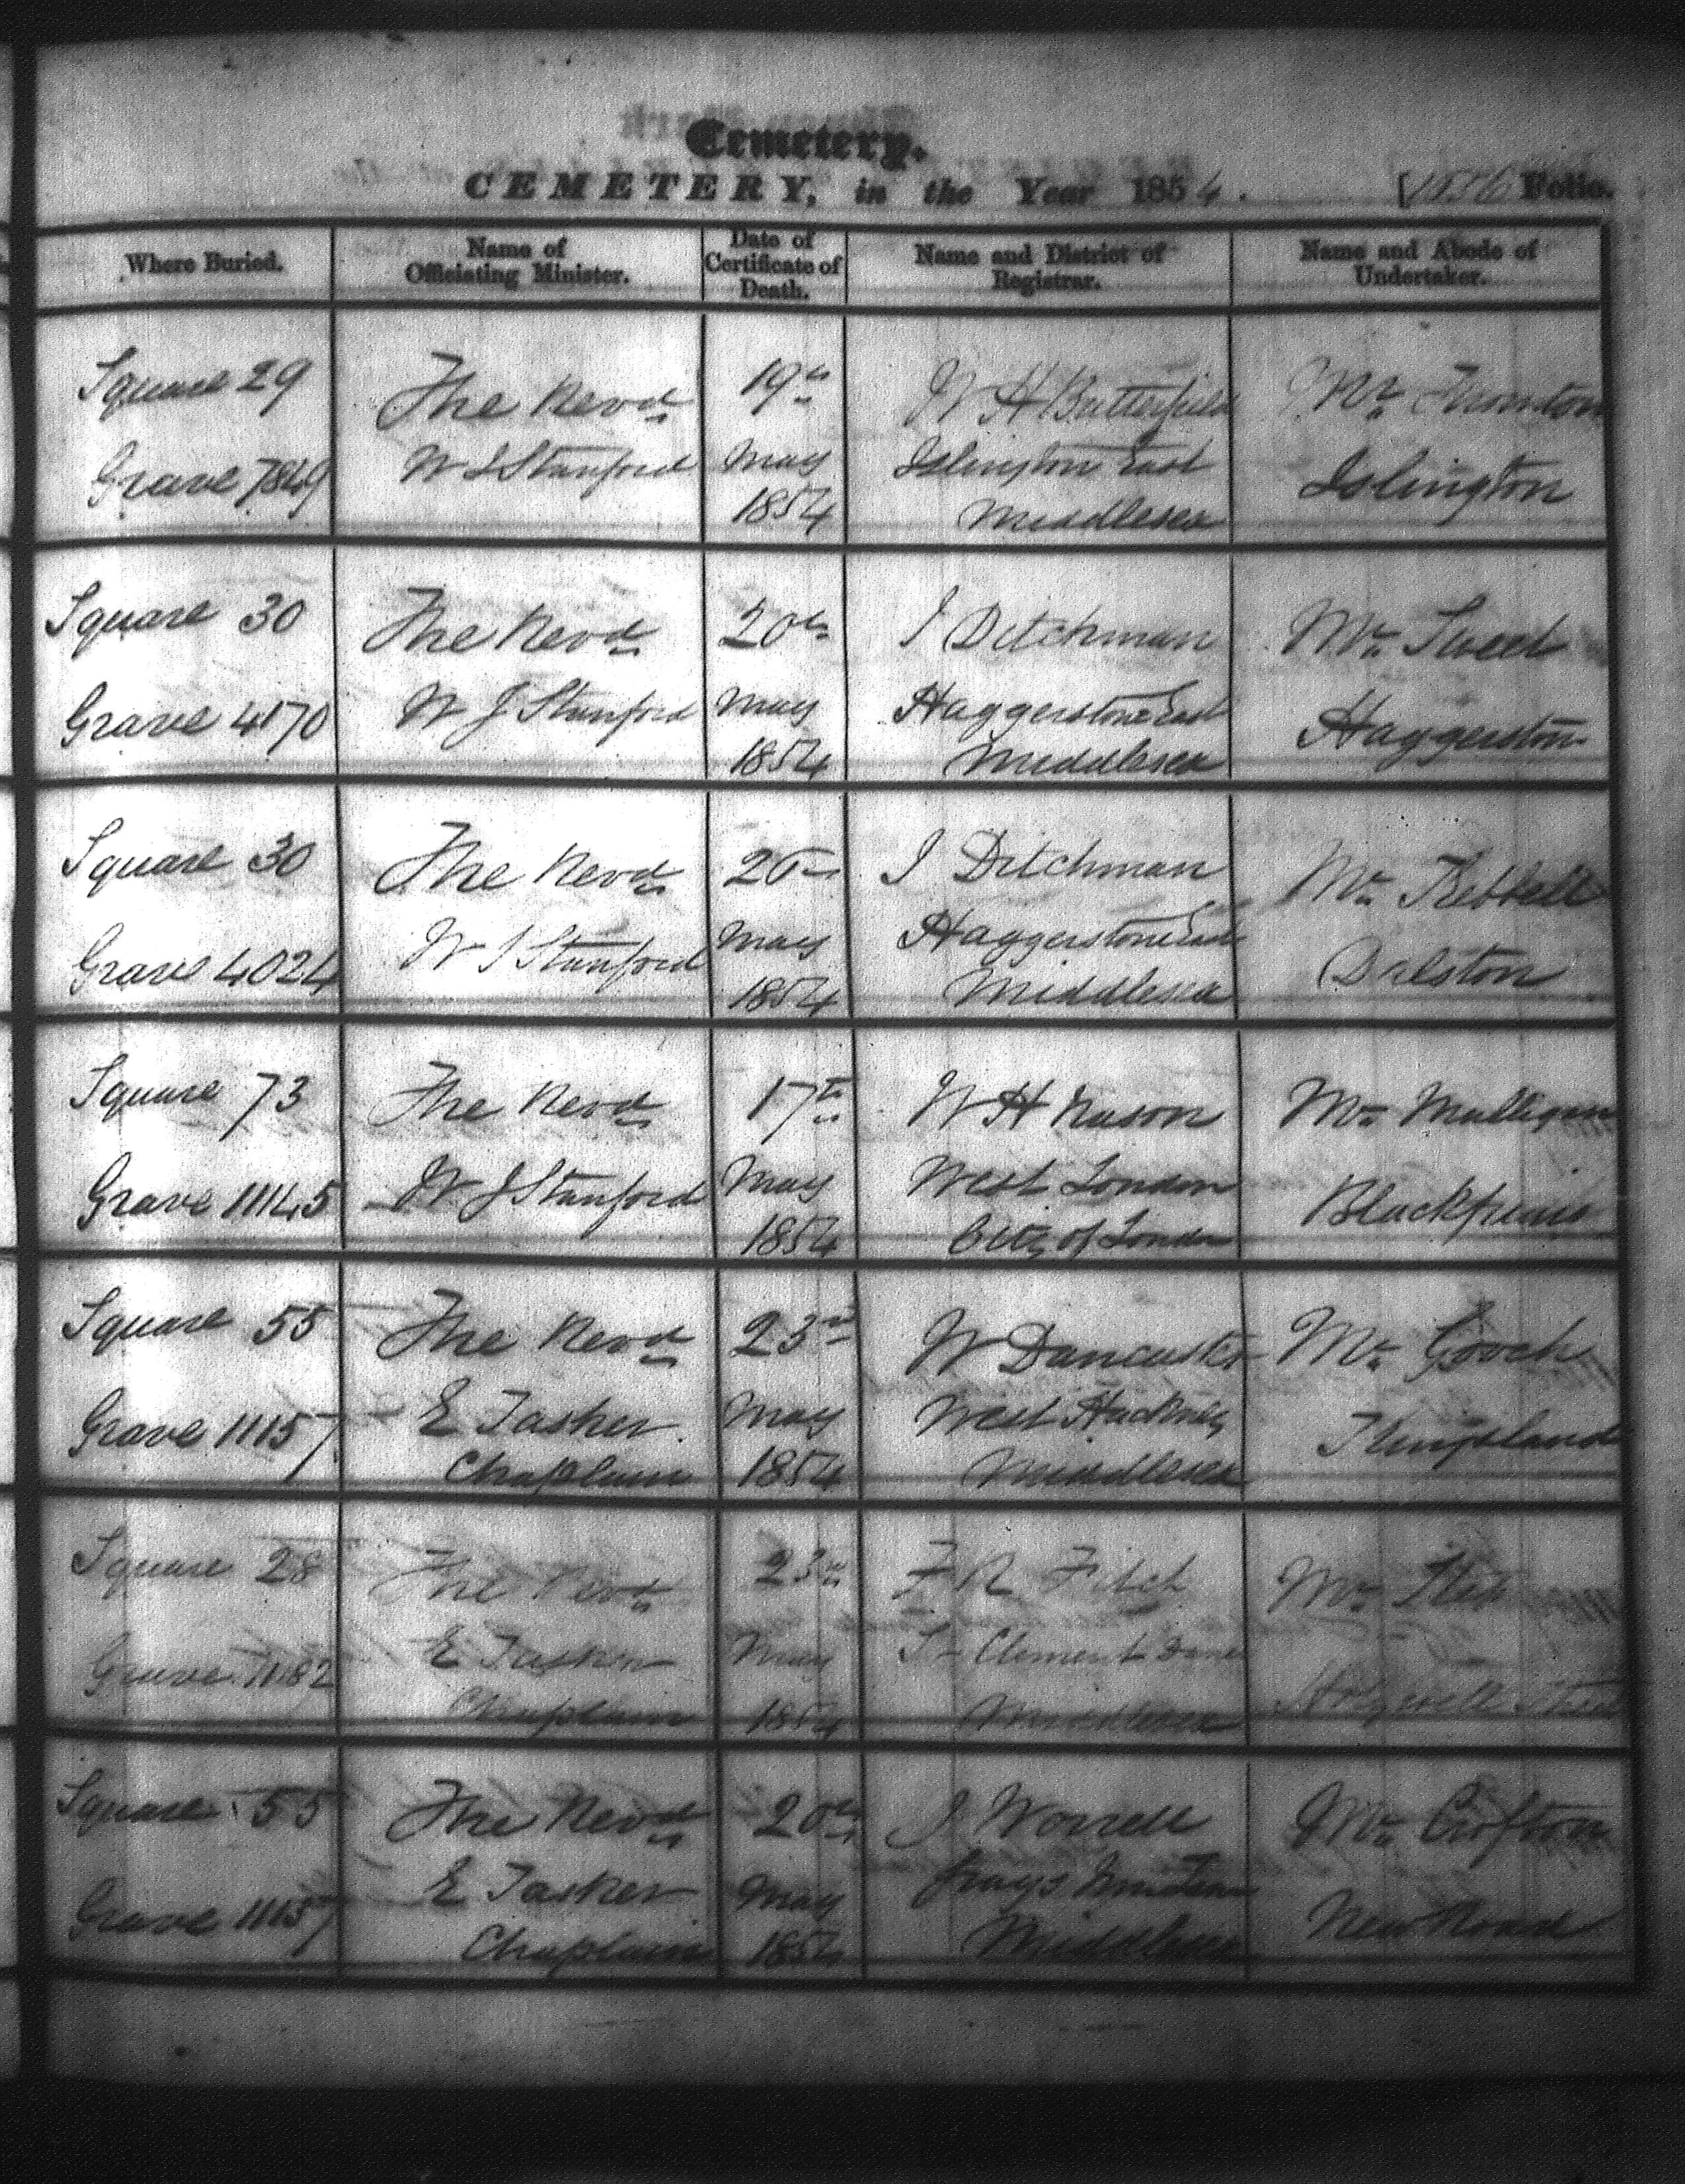 Cemetery.
CEMETERY, in the Year 1854. [1056 Folio.
Where Buried.
Name of
Officiating Minister.
Date of
Certificate of
Death.
Name and District of
Registrar.
Name and Abode of
Undertaker.
Square 29
Grave 7849
The Revd
W J Stanford
19th
May
1854
W H Butterfield
Islington East
Middlesex
Mr
Islington
Square 30
Grave 4170
The Revd
W J Stanford
20th
May
1854
J Ditchman
Haggerstone East
Middlesex
Mr Sweet
Haggerston
Square 30
Grave 4024
The Revd
W J Stanford
May
1854
J Ditchman
Haggerstone East
Middlesex
Mr
Dalston
Square 73
Grave 11145
The Revd
W J Stanford
17th
May
1854
W H Nason
West London
City of London
Mr Mulligan
Blackfriars
Square 55
Grave 11157
The Revd
E Tasker
Chaplain
23rd
May
1854
W Dancaster
West Hackney
Middlesex
Mr Gooch
Kingsland
Square 28
Grave 11182
The Revd
E Tasker
Chaplain
23rd
May
1854
F R Fitch
St Clement Danes
Middlesex
Mr
Holywell Street
Square 55
Grave 11157
The Revd
E Tasker
Chaplain
20th
May
1854
J Worrell
Grays Inn Lane
Middlesex
Mr Crofton
New Road